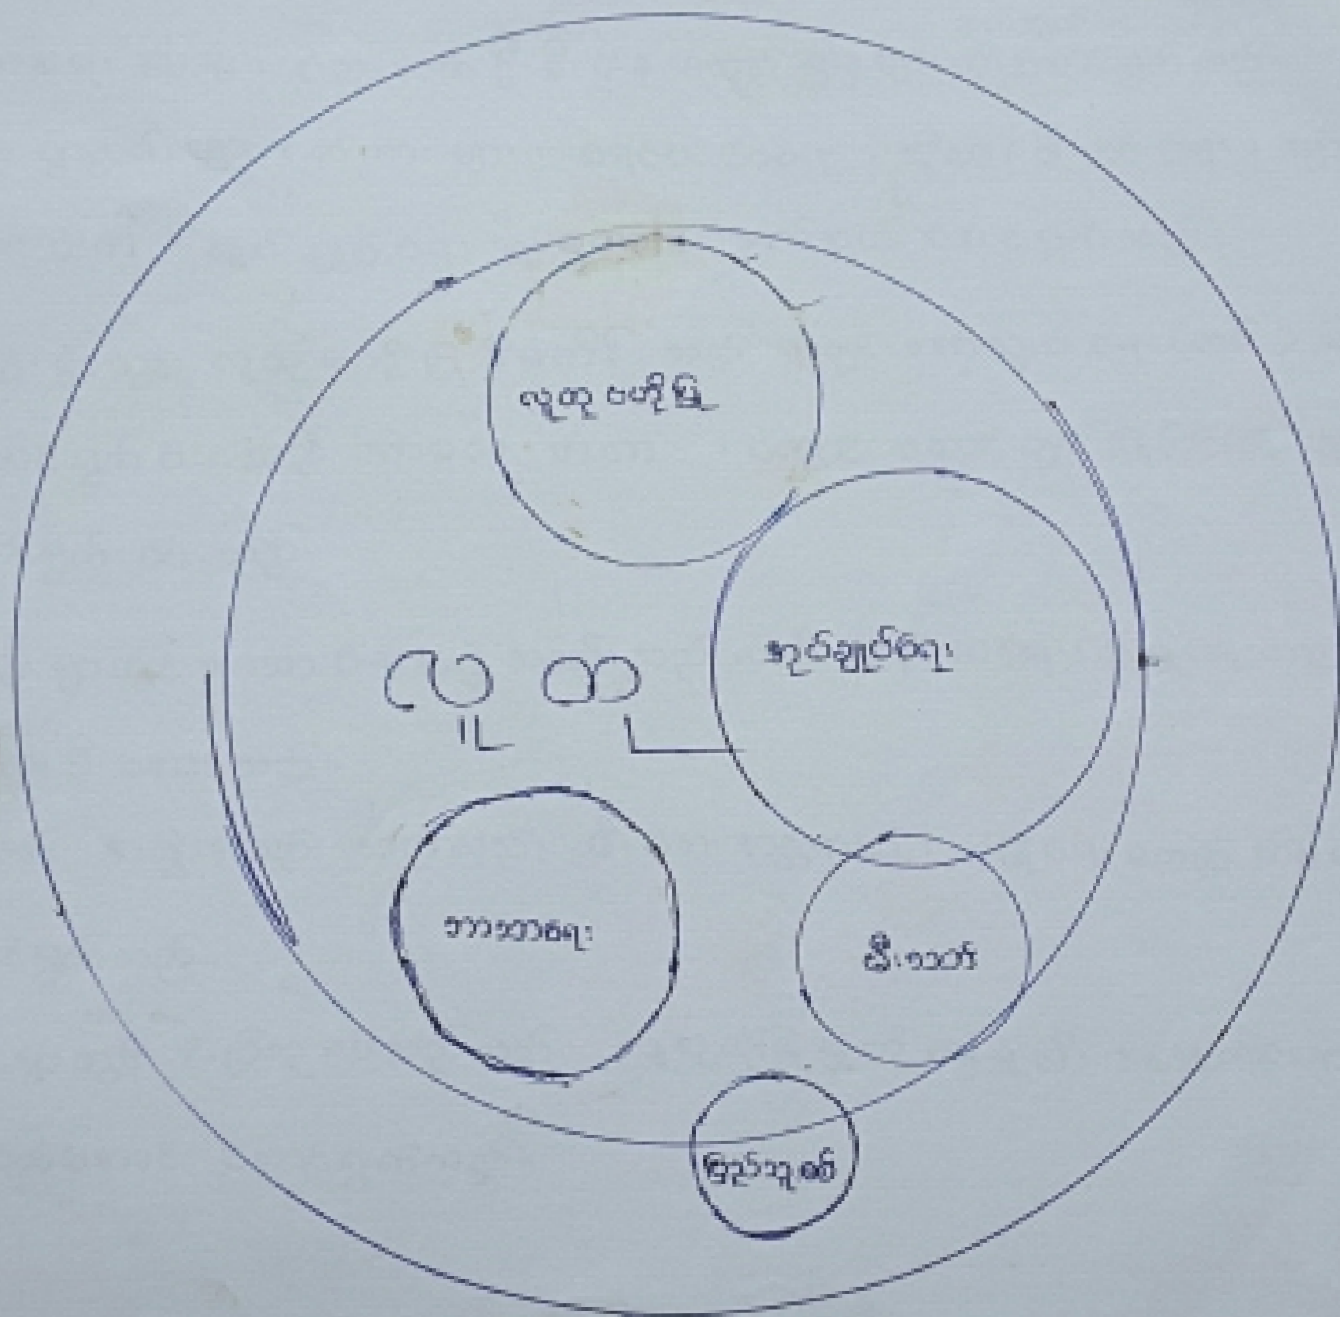 လူထု ဗဟိုပြု
အုပ်ချုပ်ရေး
လူ ထု
ဘာသာရေး
မီးသတ်
ပြည်သူ့စစ်